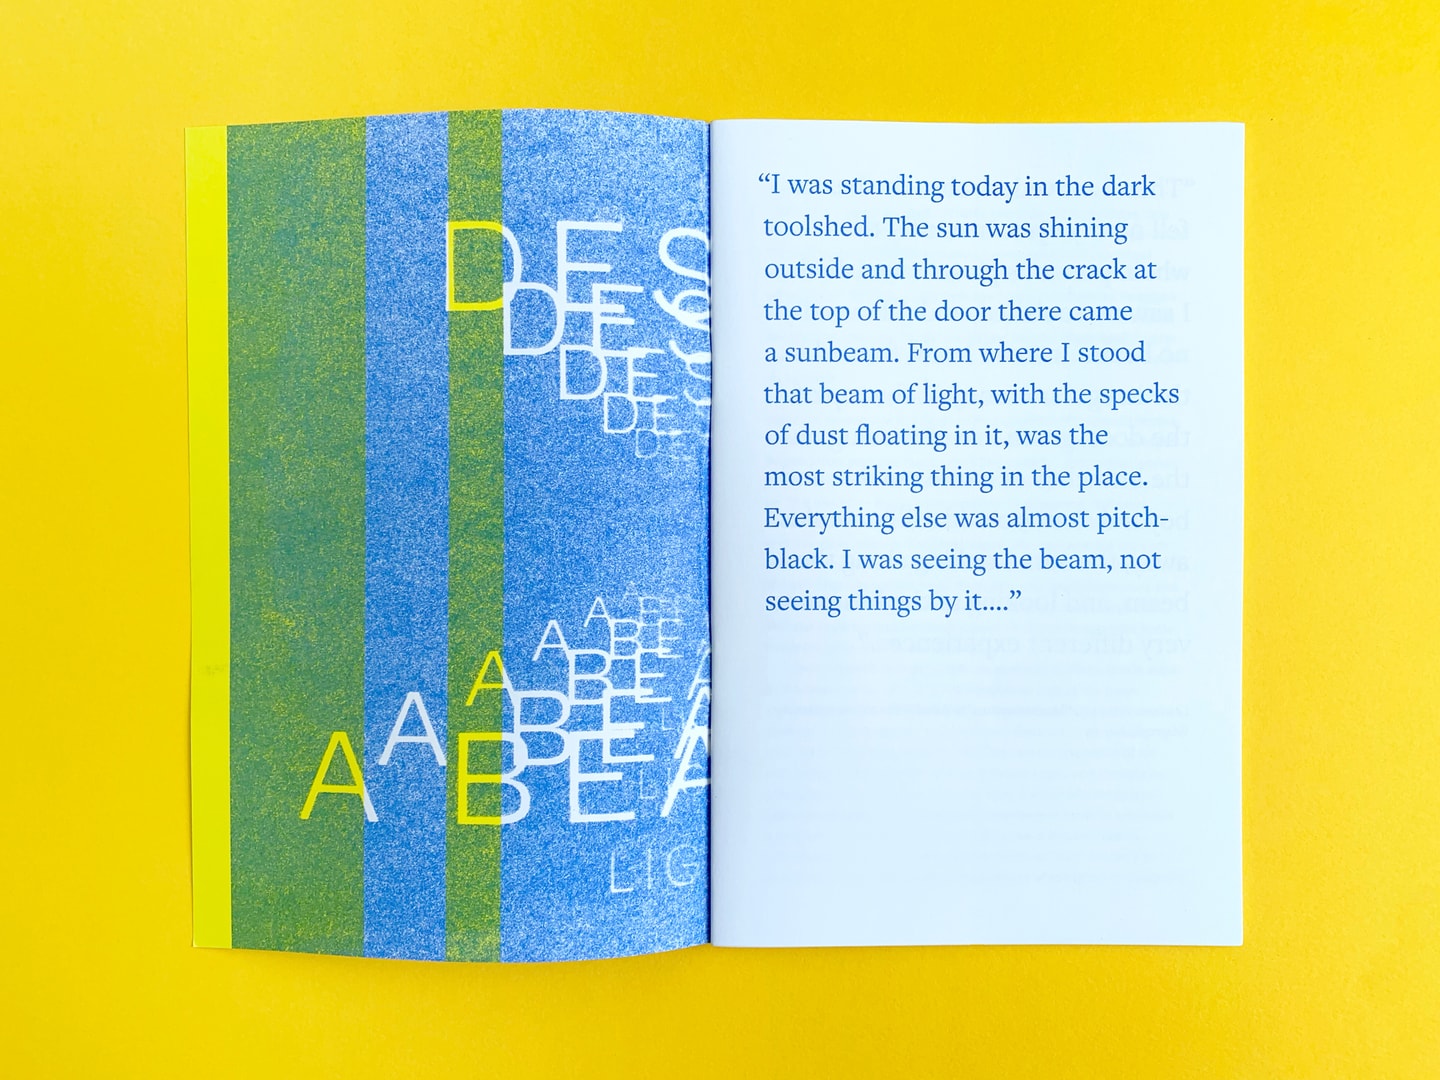 DES
DES
DE
DE
DE
ABE
ABE
ABE
ABEA
ABEA
LIG
“I was standing today in the dark
toolshed. The sun was shining
outside and through the crack at
the top of the door there came
a sunbeam. From where I stood
that beam of light, with the specks
of dust floating in it, was the
most striking thing in the place.
Everything else was almost pitch-
black. I was seeing the beam, not
seeing things by it....”